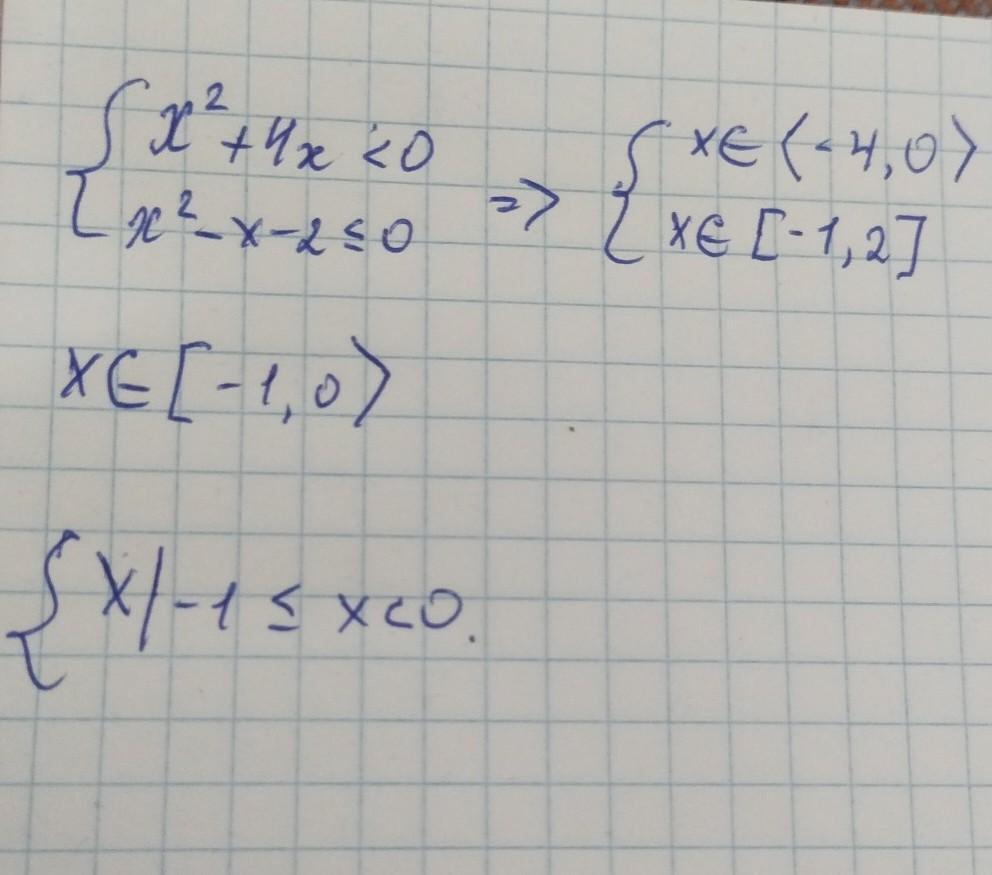 { x² + 4x < 0
x² - x - 2 ≤ 0 => { x ∈ ⟨-4, 0⟩
x ∈ [-1, 2]
x ∈ [-1, 0⟩
{ x / -1 ≤ x < 0.